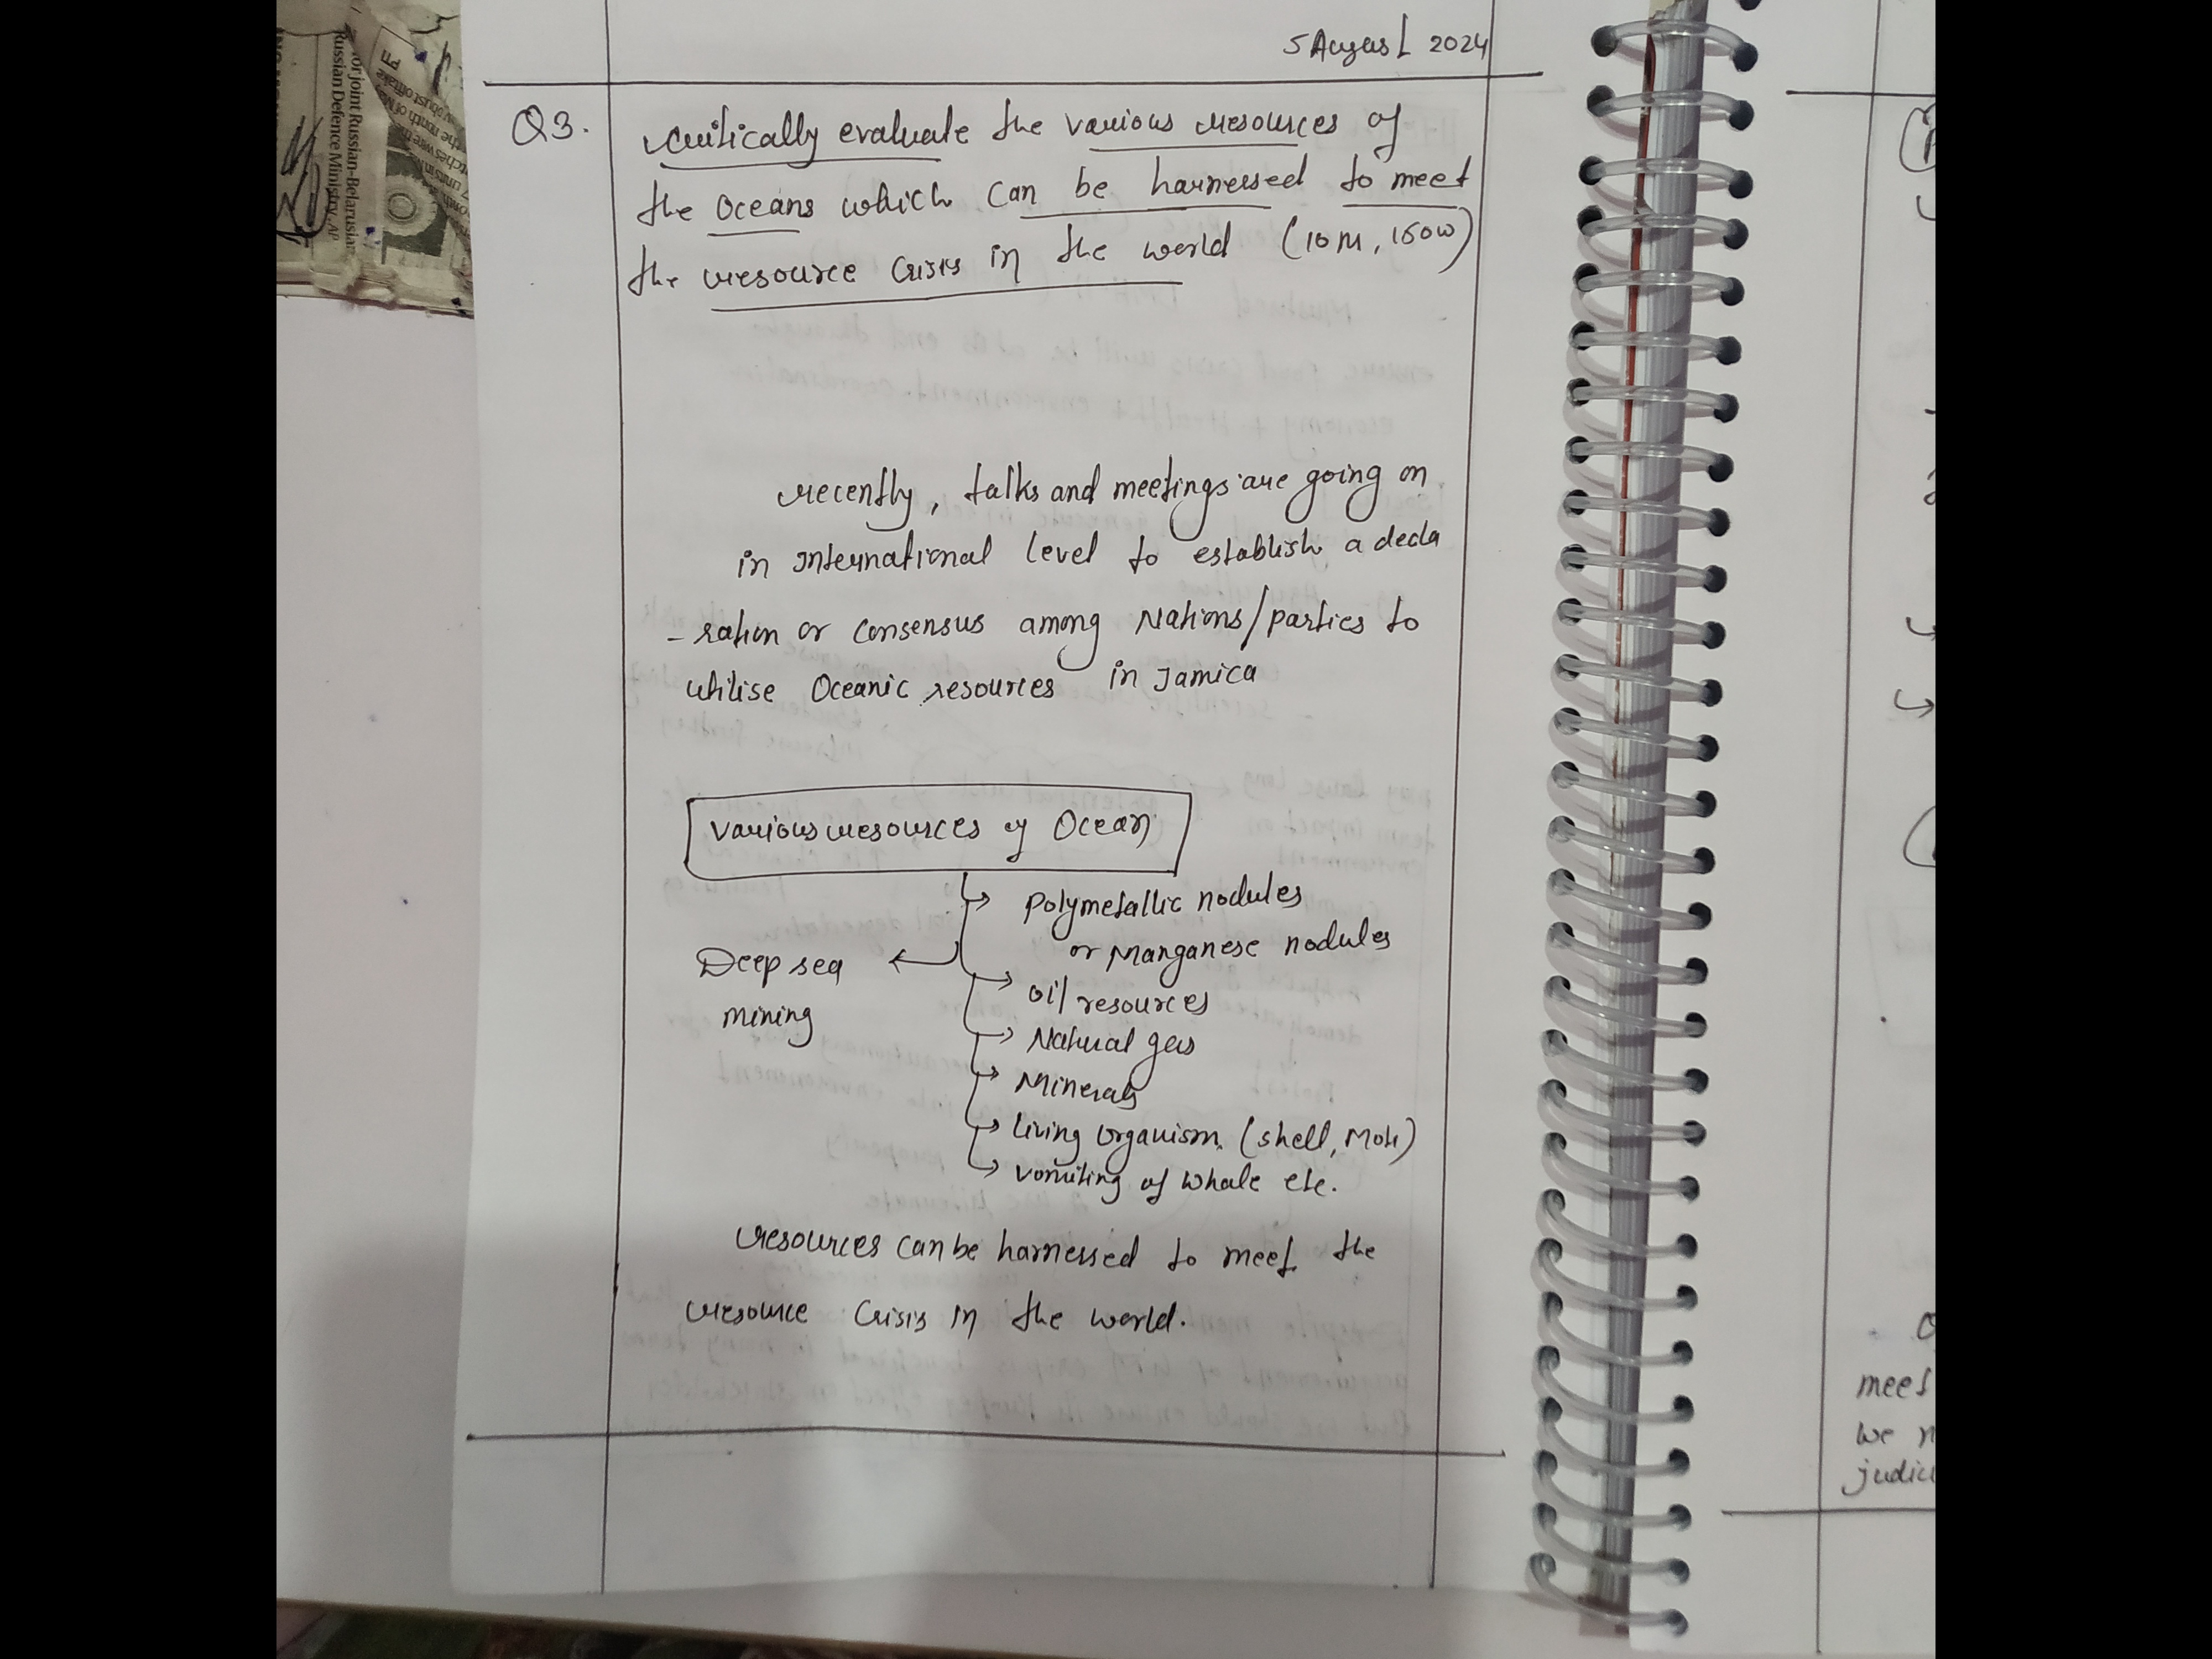 5 August 2024
Q3. critically evaluate the various resources of
the Oceans which can be harnessed to meet
the resource crisis in the world (10M, 150W)
recently, talks and meetings are going on
in International level to establish a decla
-ration or consensus among Nations/parties to
utilise Oceanic resources in Jamica
various resources of Ocean
polymetallic nodules
or Manganese nodules
Deep sea
mining
oil resources
Natural gas
Minerals
living organism (shell, Moti)
vomiting of whale etc.
resources can be harnessed to meet the
resource crisis in the world.
meet
we
judici
or joint Russian-Belarusian
Russian Defence Ministry. AP
PTI
robust offtake
the month of May
tches were the